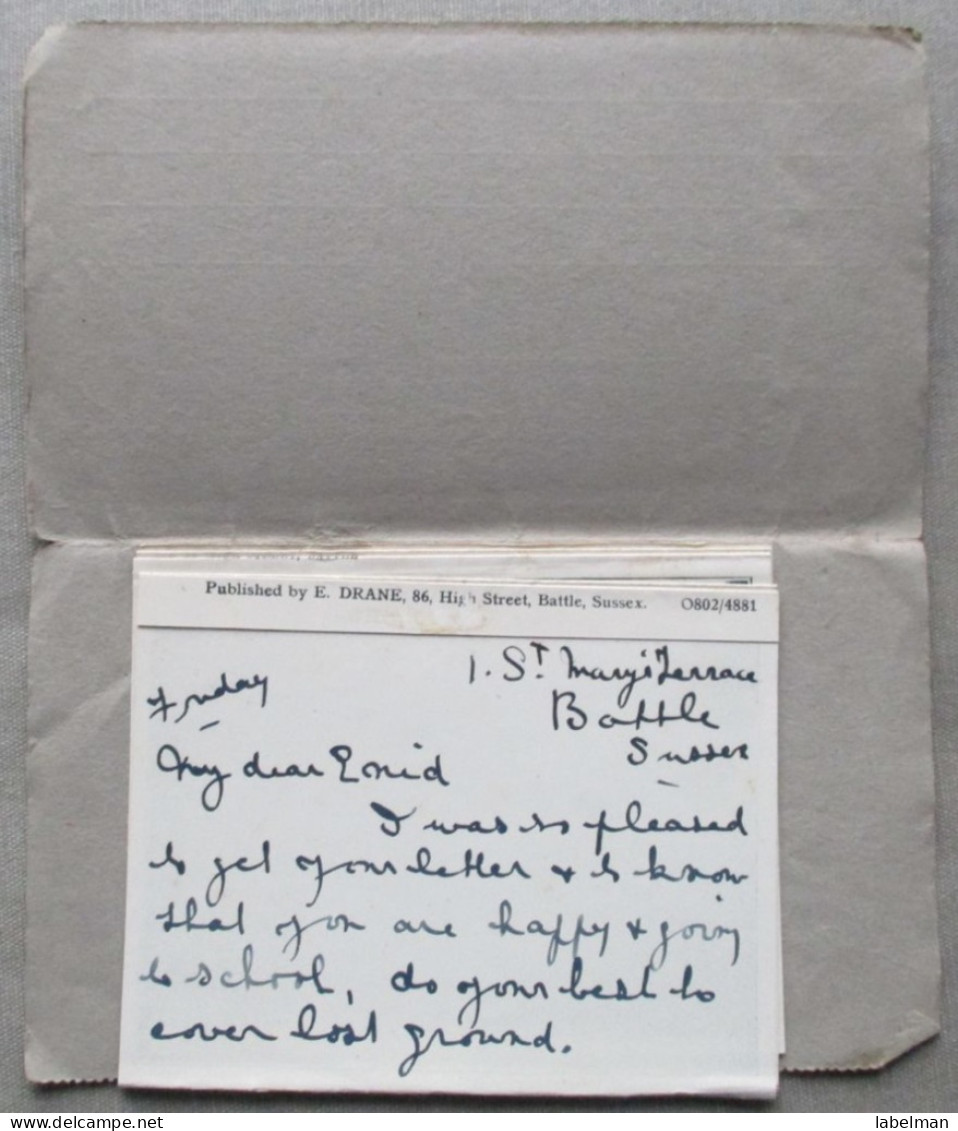 Published by E. DRANE, 86, High Street, Battle, Sussex. O802/4881
1. St Mary's Terrace
Friday
Battle
Sussex
My dear Enid
I was so pleased
to get your letter & to know
that you are happy & going
to school, do your best to
cover lost ground.
delcampe.net
labelman